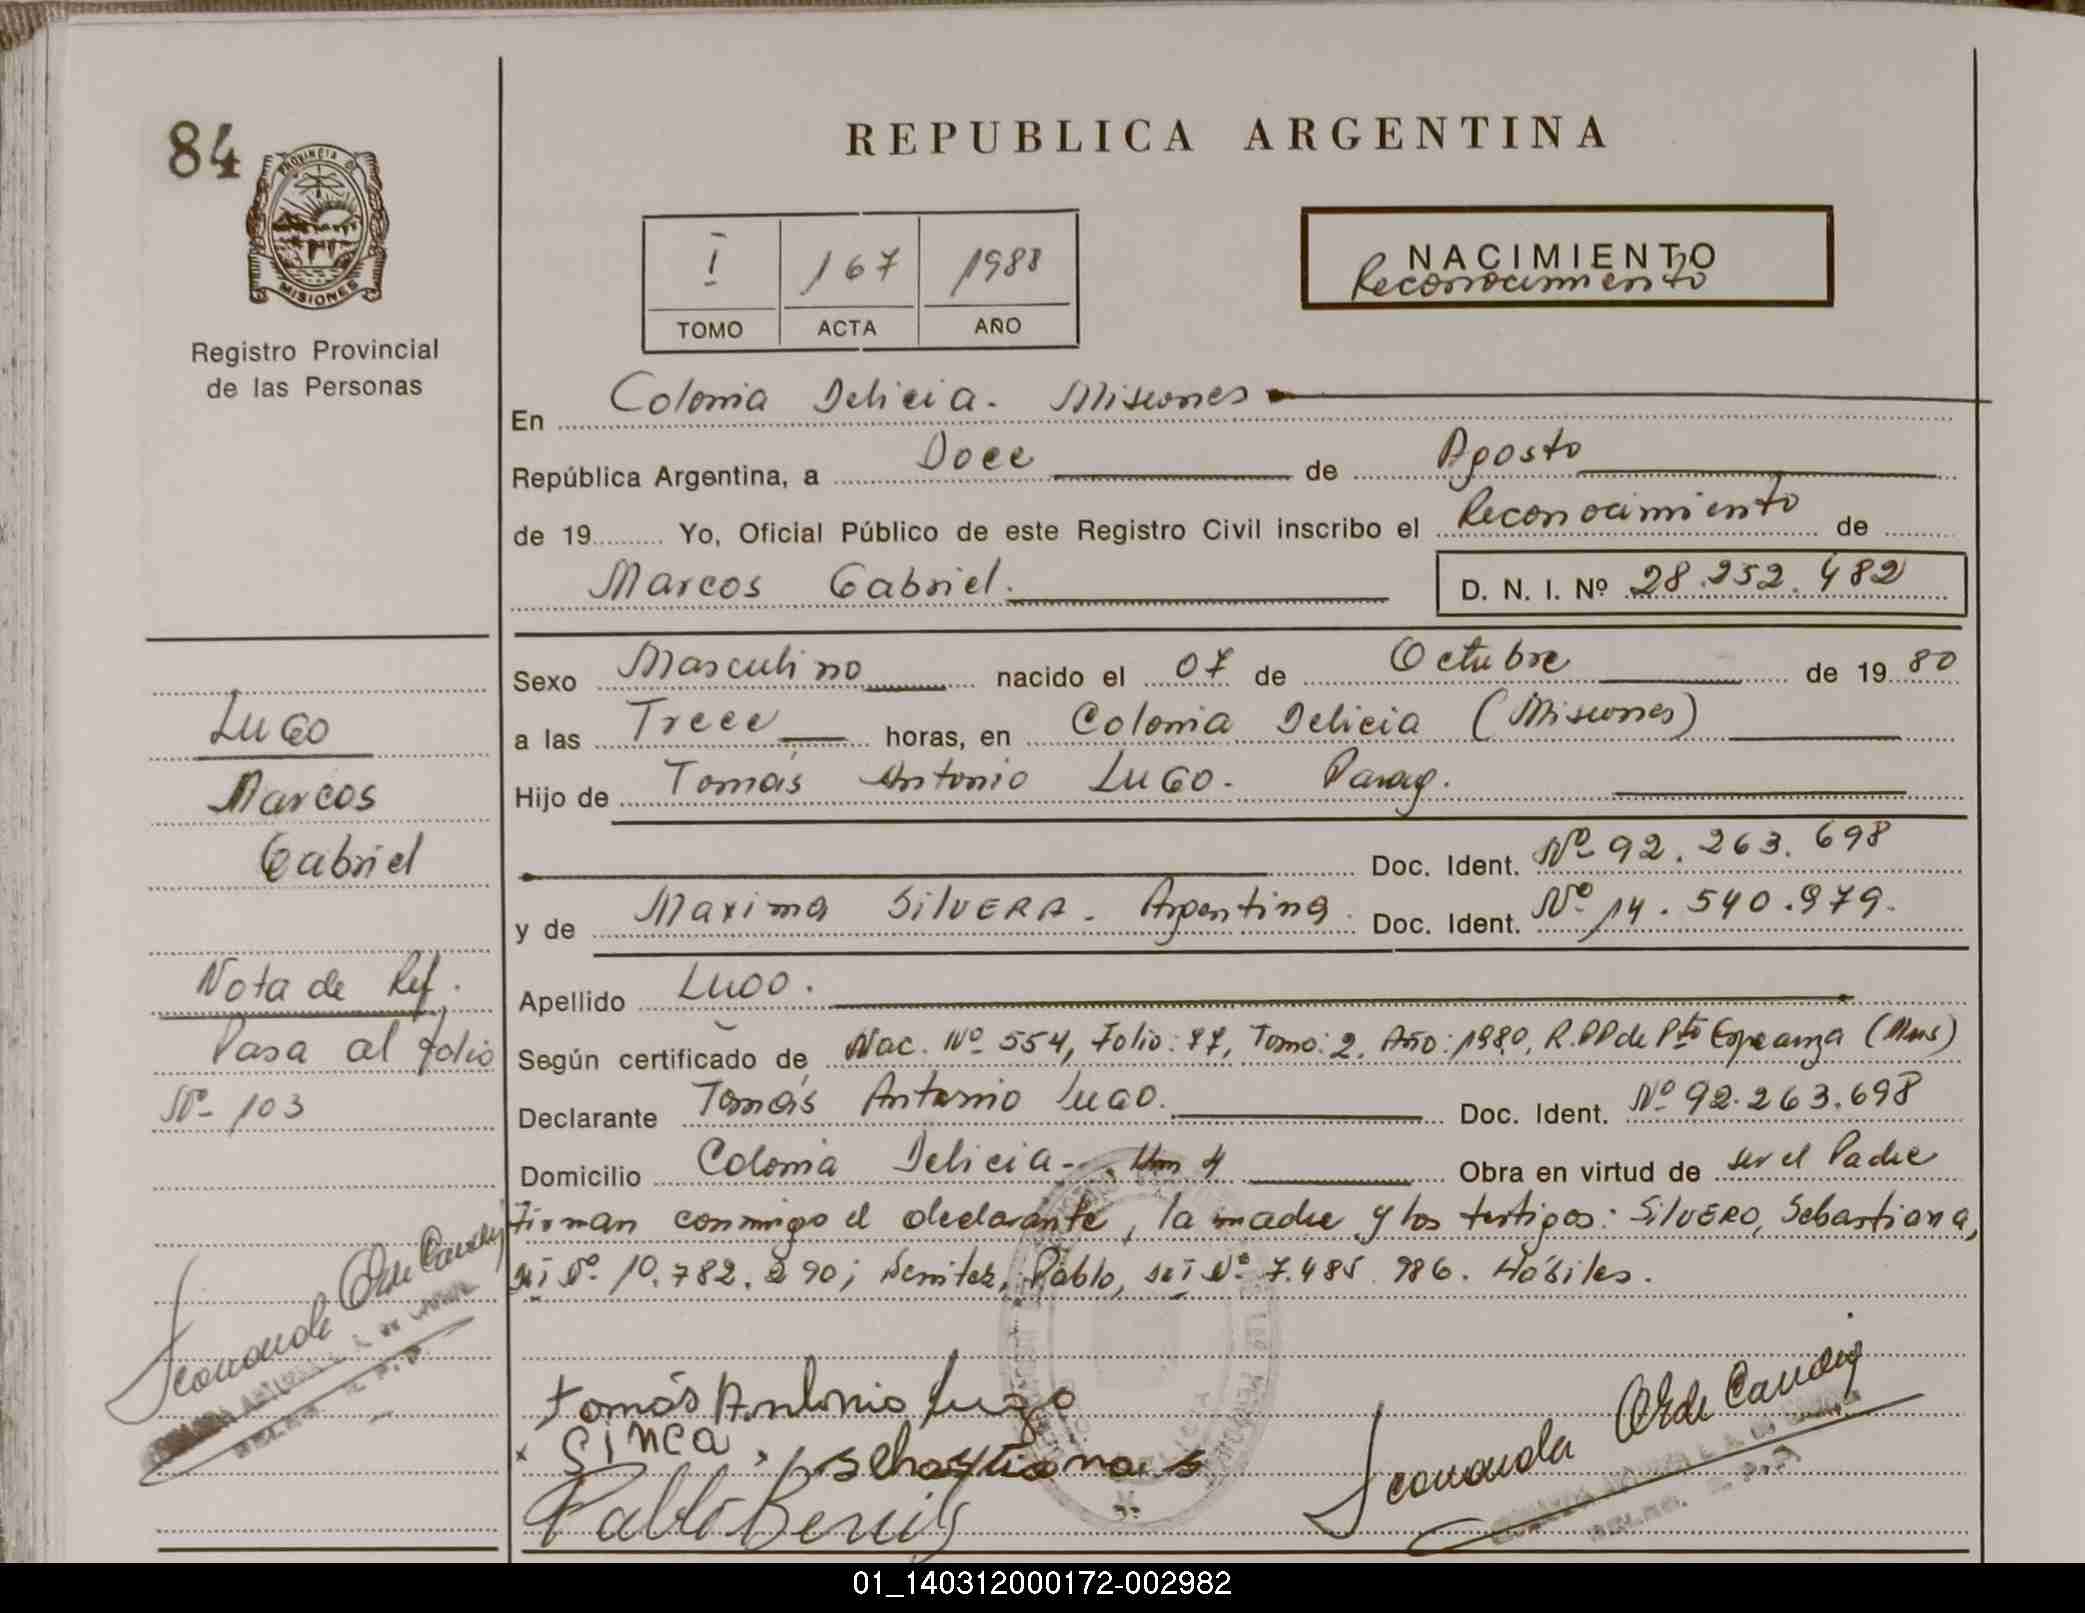 84
PROVINCIA DE
MISIONES
Registro Provincial
de las Personas
REPUBLICA ARGENTINA
I 167 1988
TOMO ACTA AÑO
NACIMIENTO
Reconocimiento
En Colonia Delicia. Misiones
República Argentina, a Doce de Agosto
de 19 Yo, Oficial Público de este Registro Civil inscribo el Reconocimiento de
Marcos Gabriel. D. N. I. Nº 28.252.482
Sexo Masculino nacido el 07 de Octubre de 19 80
a las Trece horas, en Colonia Delicia (Misiones)
Hijo de Tomás Antonio LUGO. Parag.
Doc. Ident. Nº 92.263.698
y de Maxima SILVERA. Argentina. Doc. Ident. Nº 14.540.979.
Apellido LUGO.
Según certificado de Nac. Nº 554, Folio: 77, Tomo: 2, Año: 1980, R.PP de Pto Esperanza (Mnes)
Declarante Tomás Antonio LUGO. Doc. Ident. Nº 92.263.698
Domicilio Colonia Delicia-. Km 4 Obra en virtud de ser el Padre
Firman conmigo el declarante, la madre y los testigos: SILVERO, Sebastiana,
Nº 10.782.290; Benitez, Pablo, Nº 7.485.986. Hábiles.
Tomás Antonio Lugo
sebastiana s
Pablo Benitez
LUGO
Marcos
Gabriel
Nota de Ref.
Pasa al folio
Nº 103
01_140312000172-002982